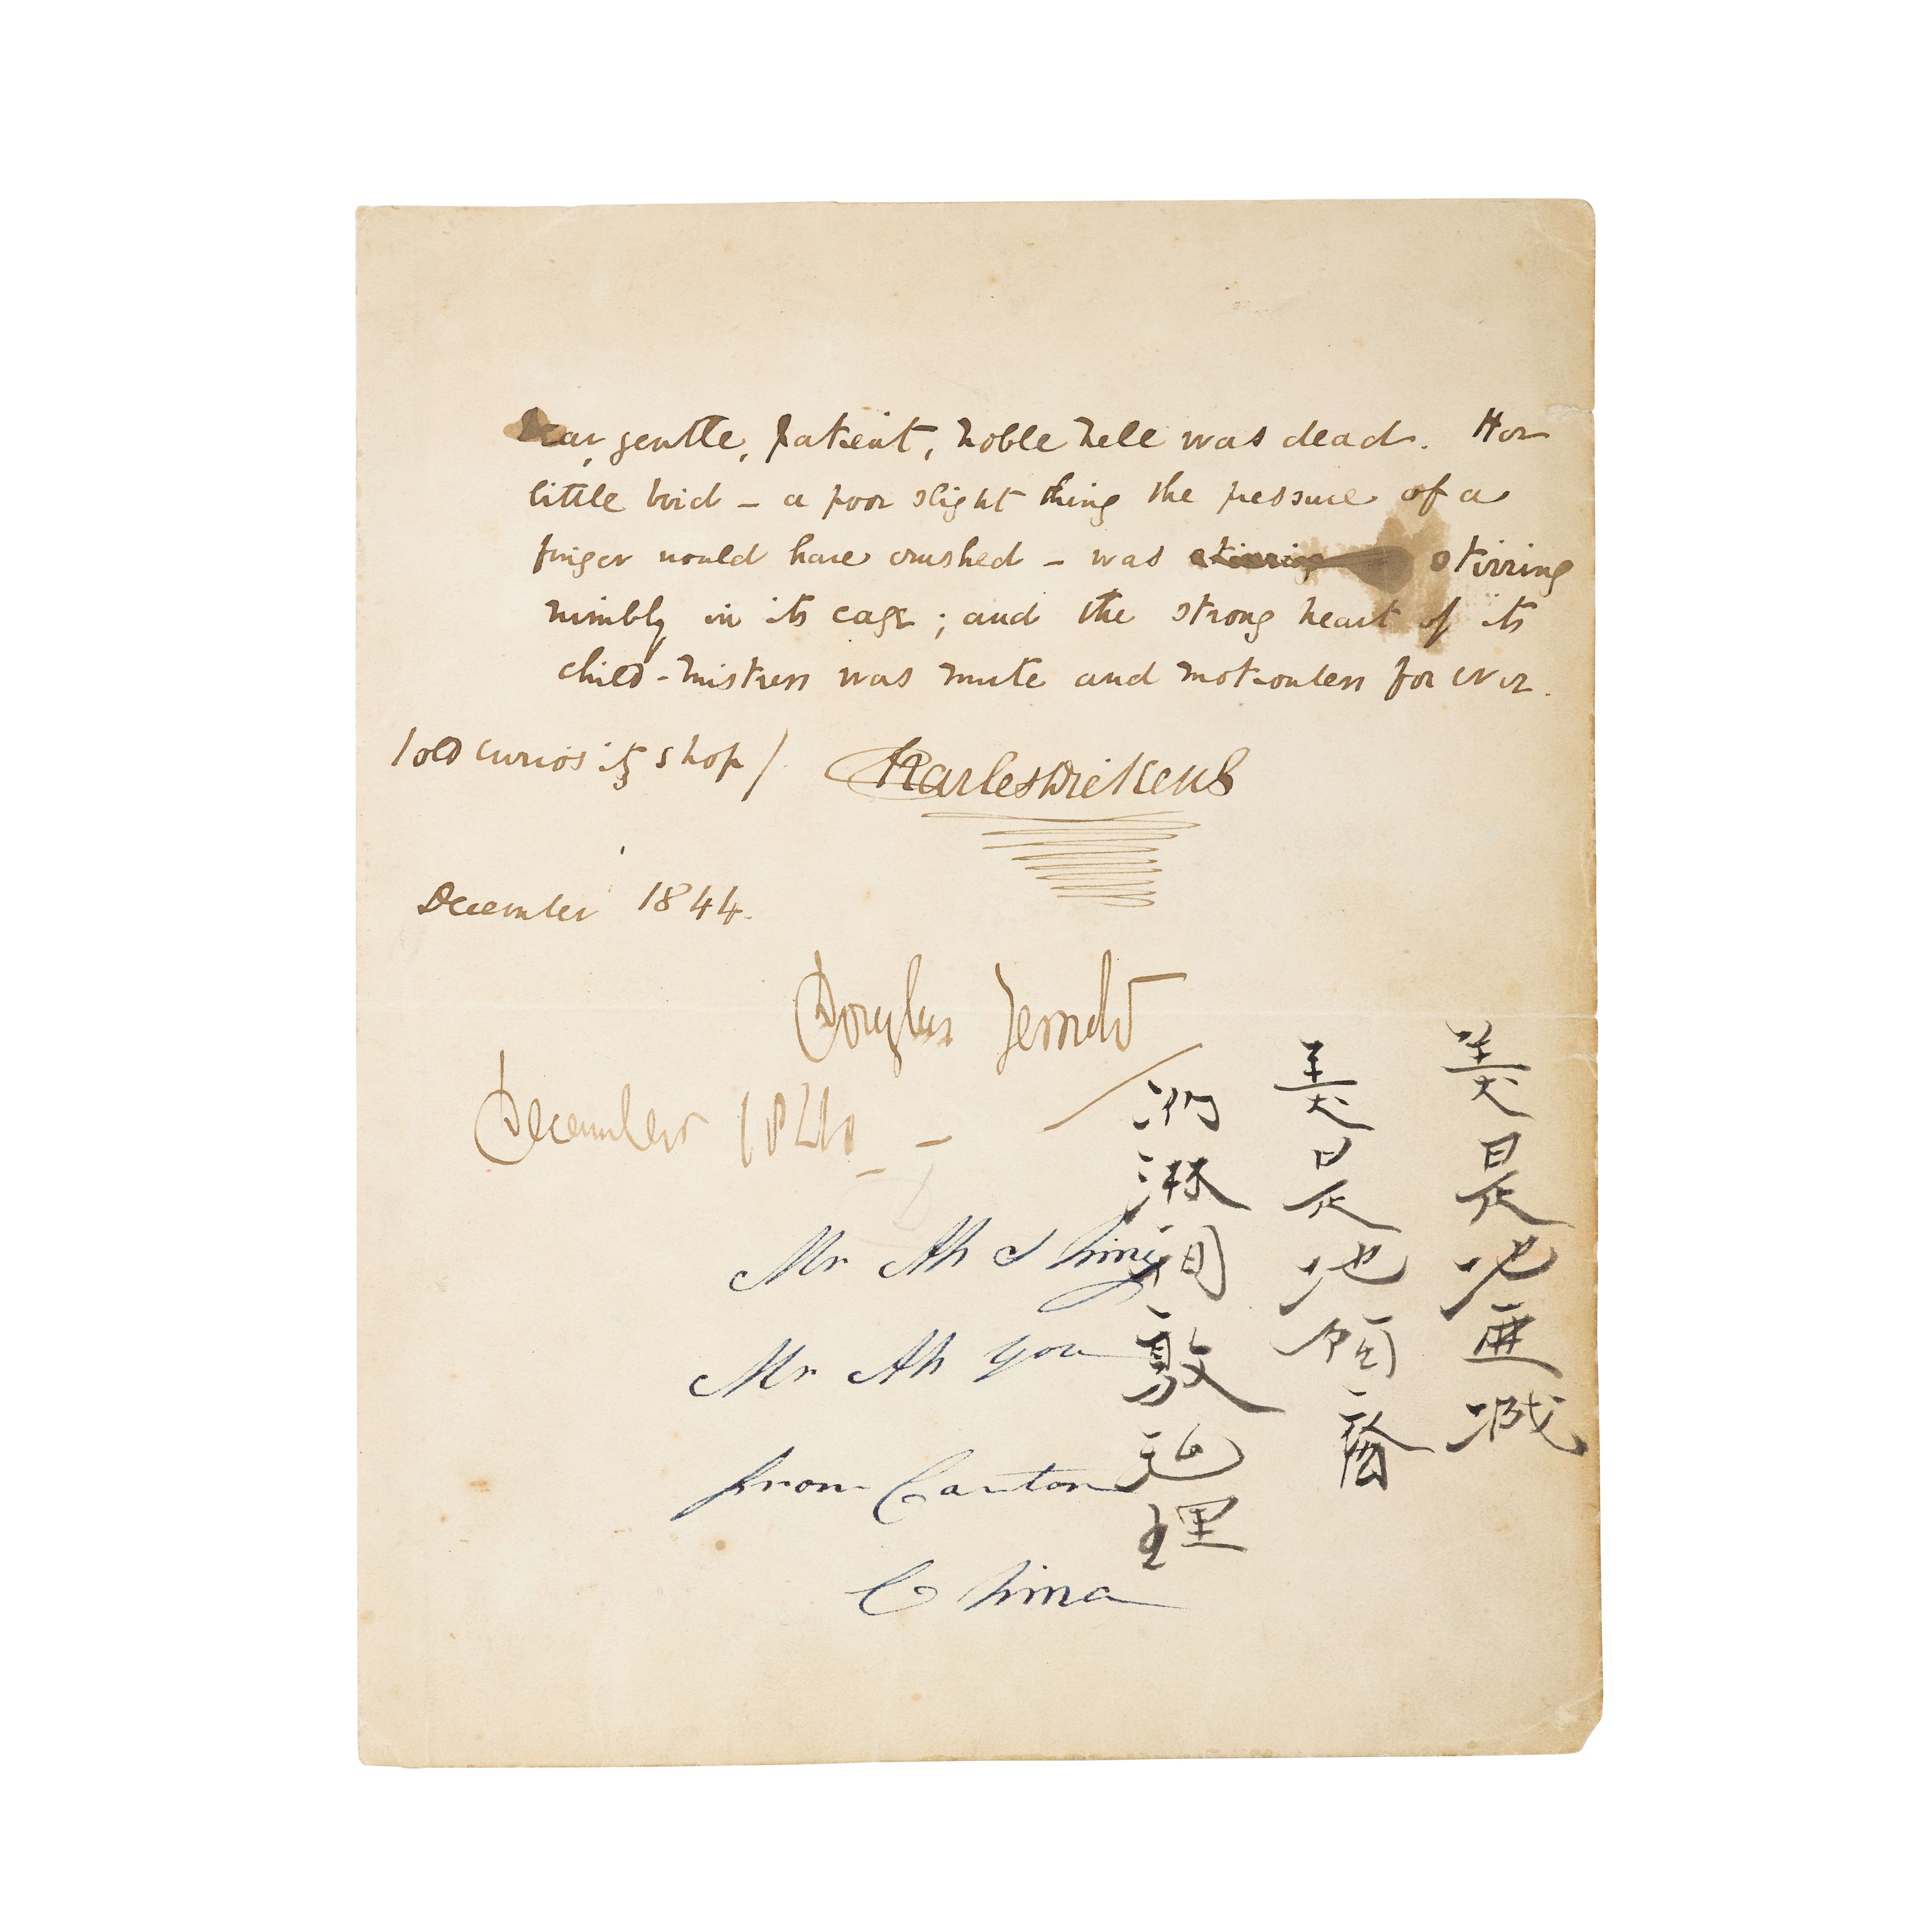 Dear, gentle, patient, noble Nell was dead. Her
little bird – a poor slight thing the pressure of a
finger would have crushed – was stirring stirring
nimbly in its cage; and the strong heart of its
child-mistress was mute and motionless for ever.
/Old Curiosity Shop/
Charles Dickens
December 1844.
Douglas Jerrold
December 1844
美是地
美是地
理
Mr Ah Shing
Mr Ah You
from Canton
China